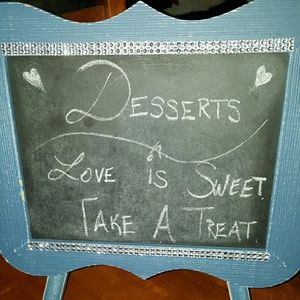 Desserts
Love is Sweet
Take A Treat